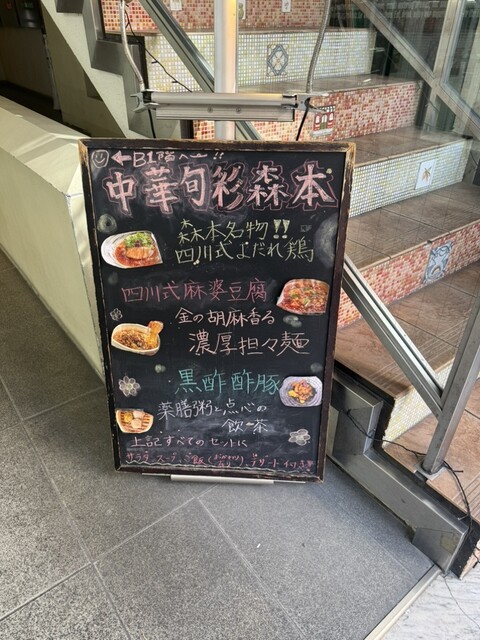 ←B1階へ!!
中華旬彩森本
森本名物!!
四川式よだれ鶏
四川式麻婆豆腐
金の胡麻香る
濃厚担々麺
黒酢酢豚
薬膳粥と点心の
飲茶
上記すべてのセットに
サラダ スープ ご飯 デザート付き